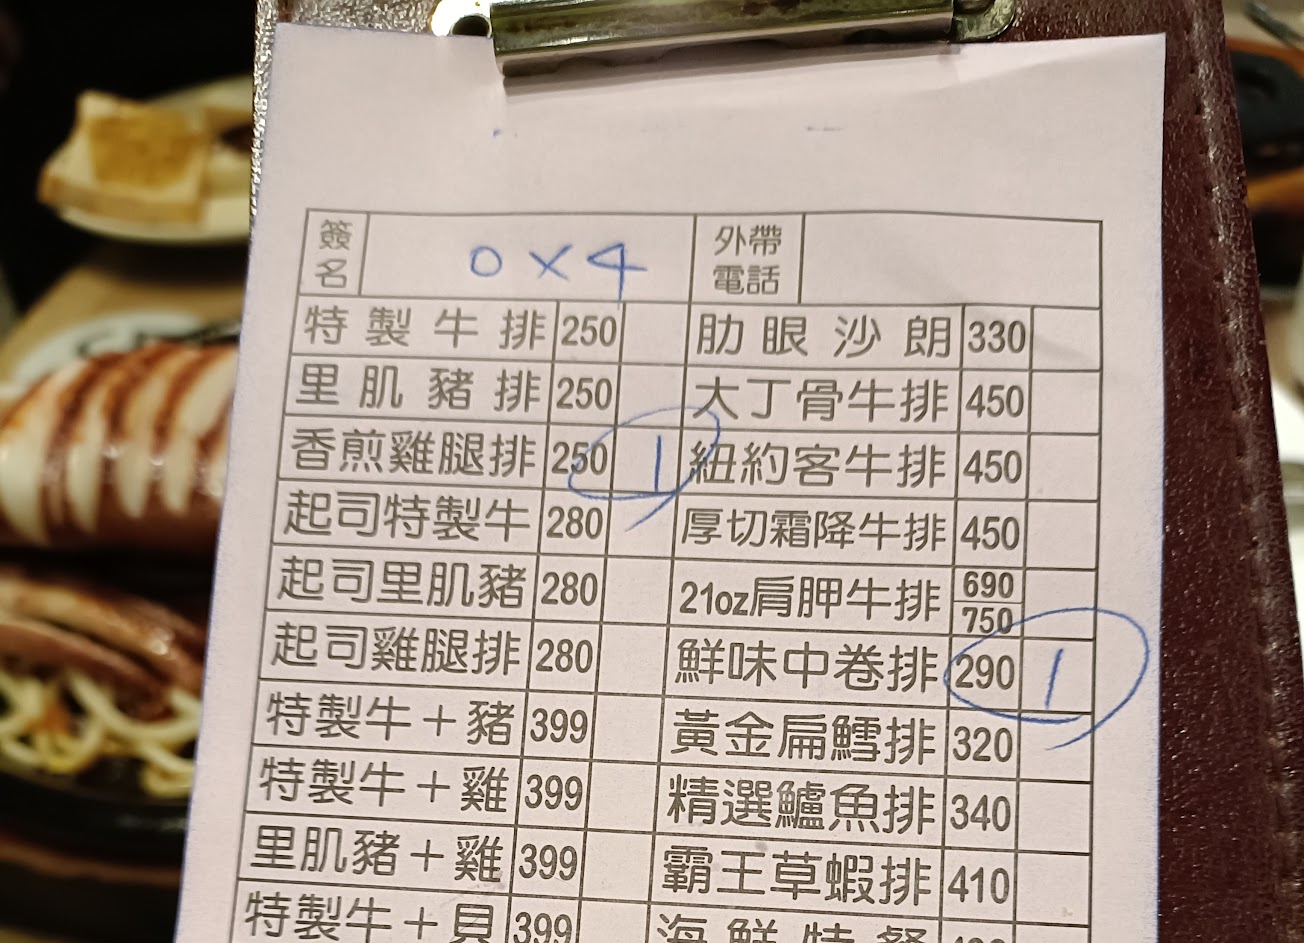 簽名 0×4 外帶電話
特製牛排 250 肋眼沙朗 330
里肌豬排 250 大丁骨牛排 450
香煎雞腿排 250 1 紐約客牛排 450
起司特製牛 280 厚切霜降牛排 450
起司里肌豬 280 21oz肩胛牛排 690 750
起司雞腿排 280 鮮味中卷排 290 1
特製牛+豬 399 黃金扁鱈排 320
特製牛+雞 399 精選鱸魚排 340
里肌豬+雞 399 霸王草蝦排 410
特製牛+貝 399 海鮮特餐